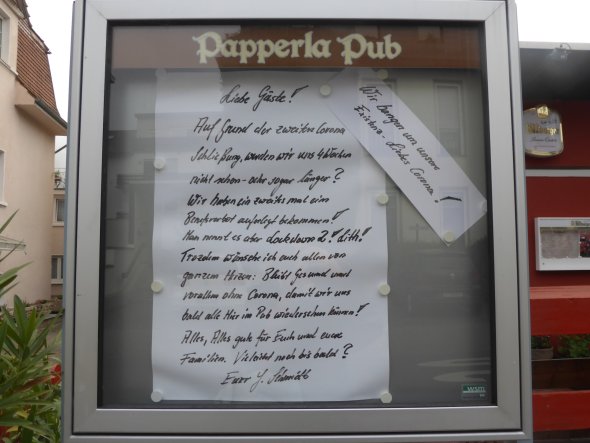 Papperla Pub
Liebe Gäste!
Auf Grund der zweiten Corona
Schließung, werden wir uns 4 Wochen
nicht sehen - oder sogar länger?
Wir haben ein zweites mal ein
Berufsverbot auferlegt bekommen!
Man nennt es aber Lockdown 2!
Trozdem wünsche ich euch allen von
ganzem Herzen: Bleibt Gesund und
vorallem ohne Corona, damit wir uns
bald alle hier im Pub wiedersehen können!
Alles, Alles gute für Euch und eure
Familien. Vieleicht noch bis bald?
Euer J. Schmidt
Wir bangen um unsere
Existenz. Liebes Corona!
wsm